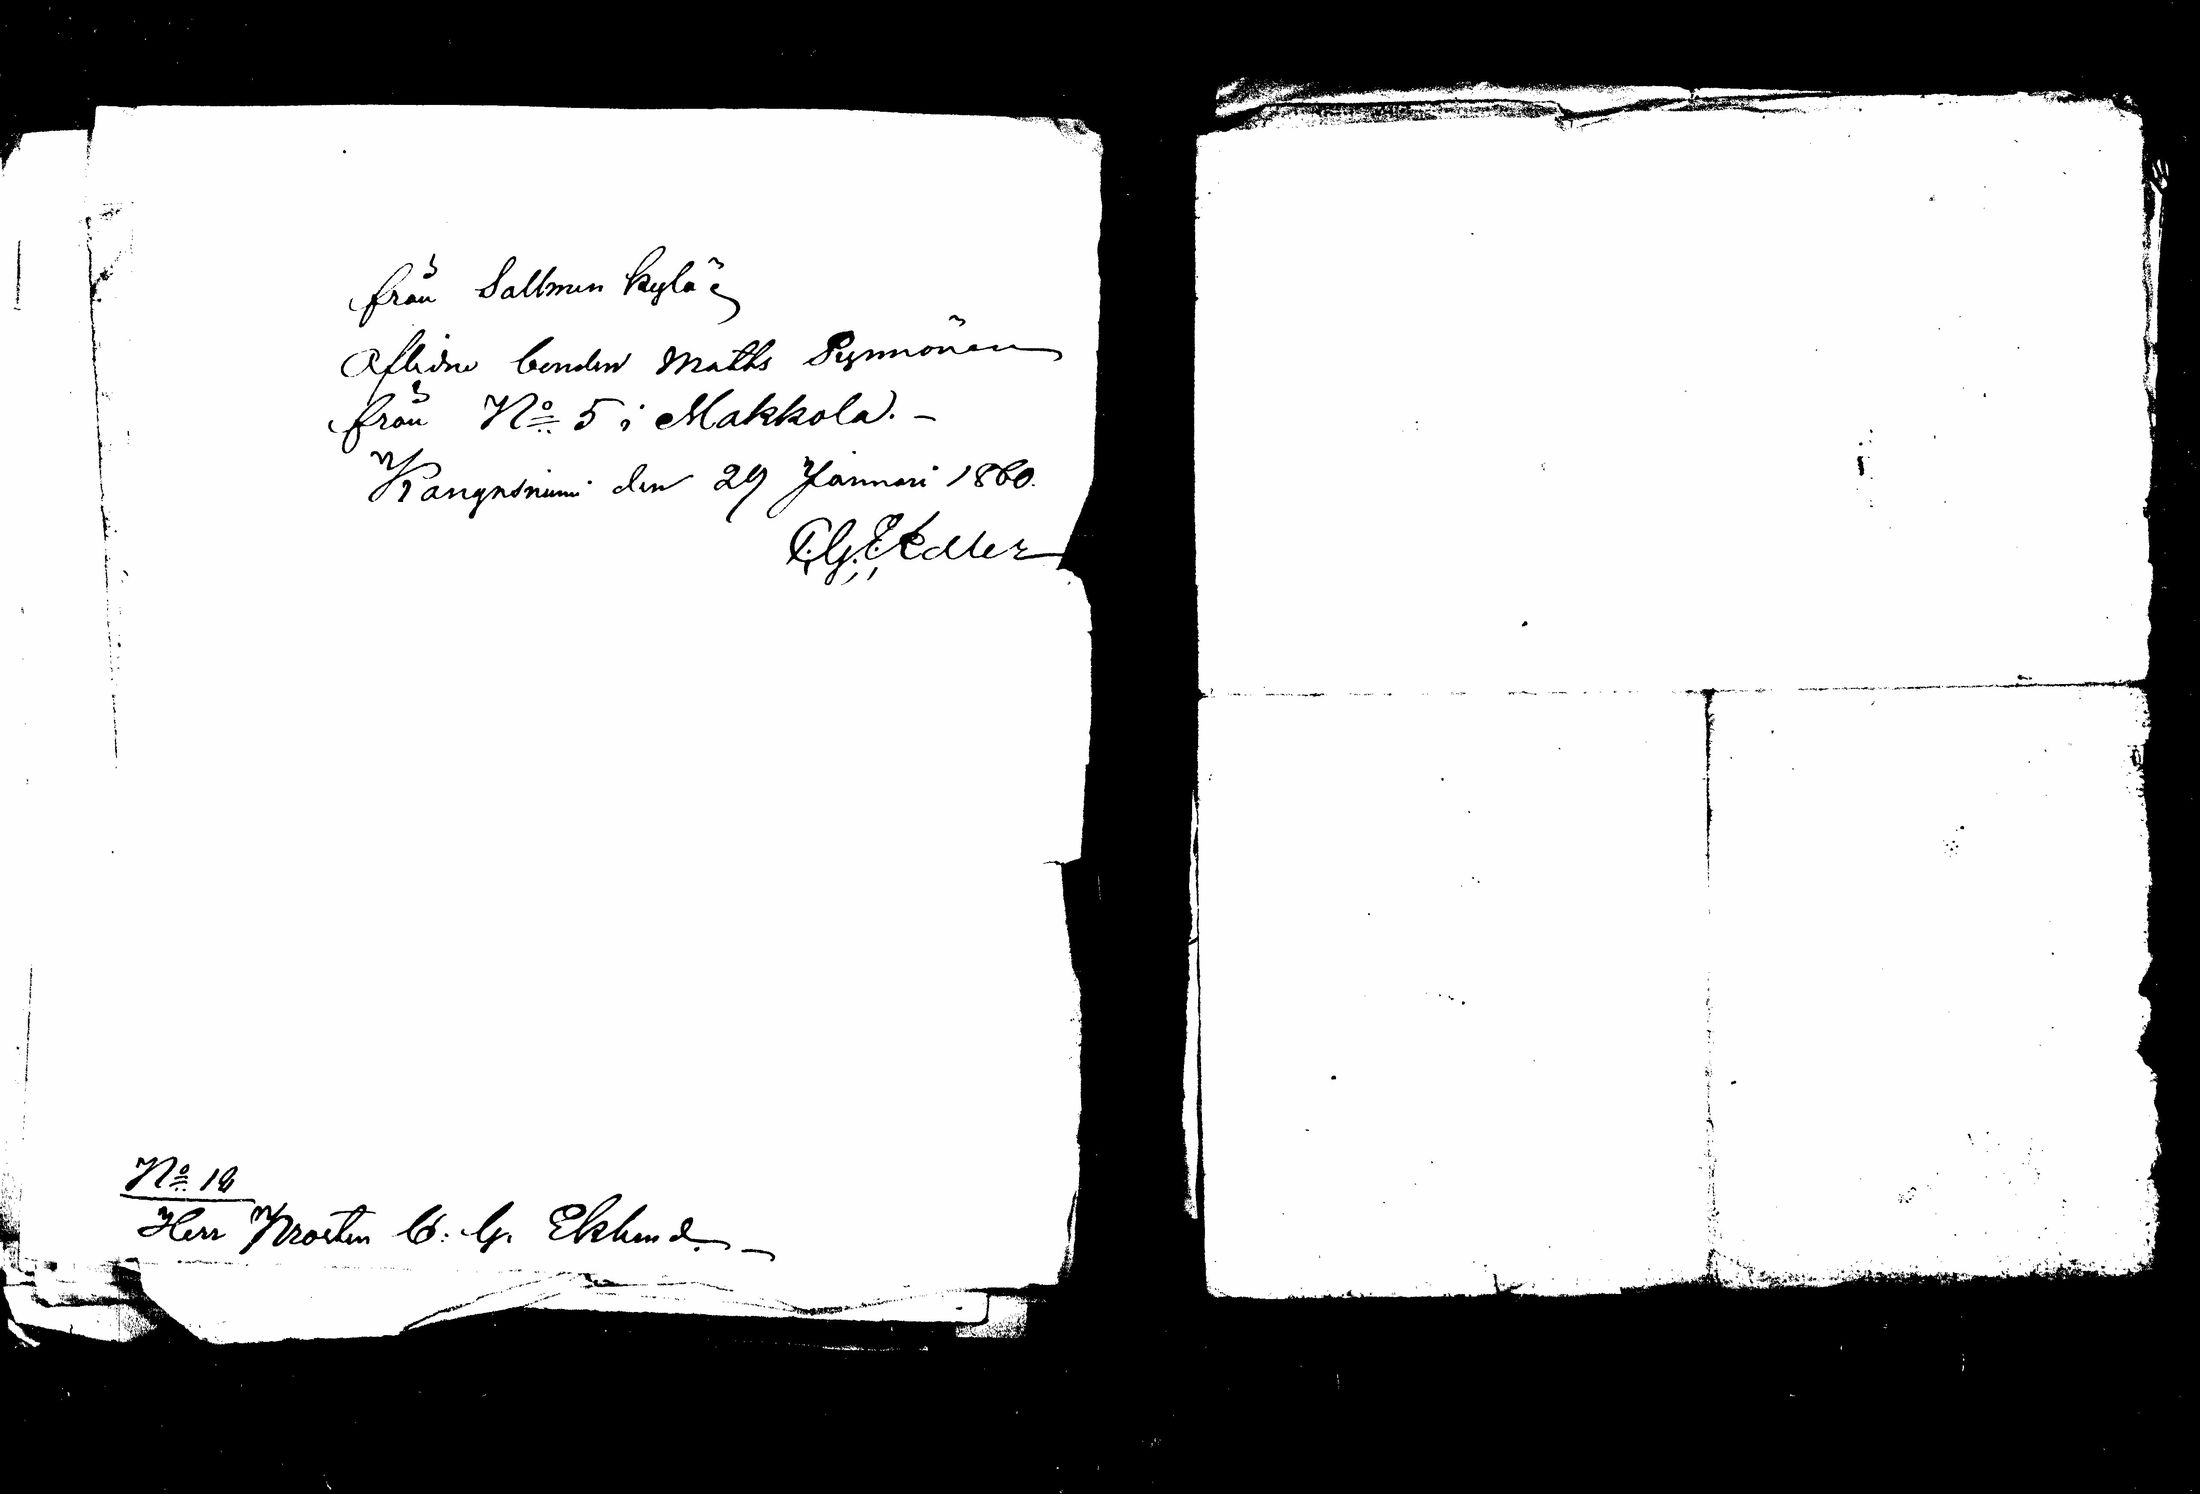 från Sallmen kylä;
Aflidne bonden Maths Pynnönen
från No 5 i Makkola. –
Kangasniemi den 29 Januari 1860.
C. G. E. Edler
No 18
Herr Prosten C. G. Eklund. –